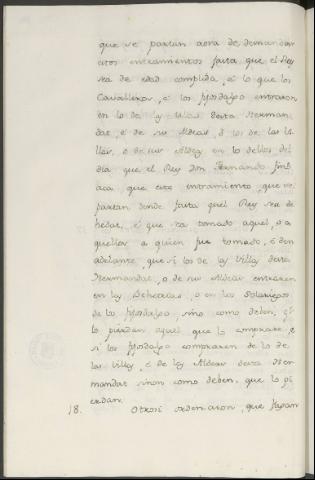 que se partan aora de demandar
estos entramientos fasta que el Rey
sea de edad complida, é lo que los
Cavalleros, é los fijosdalgo entraron
en lo de las Villas desta Herman-
dat, é de sus Aldeas, ó los de las Vi-
llas, o de sus Aldeas en lo dellos del
dia que el Rey Don Fernando finó
acá que este entramiento, que se
partan dende fasta quel Rey sea de
hedat, é que sea tomado aquel, o a
quellos a quien fue tomado, é den
adelante, que si los de las Villas desta
Hermandat, o de sus Aldeas entraren
en las Behetrias, o en los Solariegos
de los fijosdalgo sino como deben, q.
lo pierdan aquel que lo comprare, é
si los fijosdalgo compraren de lo de
las Villas, é de las Aldeas desta Her-
mandat sinon como deben, que lo pi-
erdan.
18. Otrosi ordenaron, que fagan